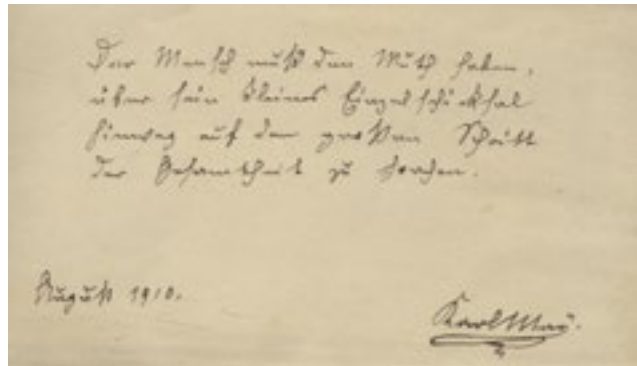 Der Mensch muß den Muth haben,
über sein kleines Einzelschicksal
hinweg auf den großen Schritt
der Gesamtheit zu horchen.
August 1910.
Karl May.